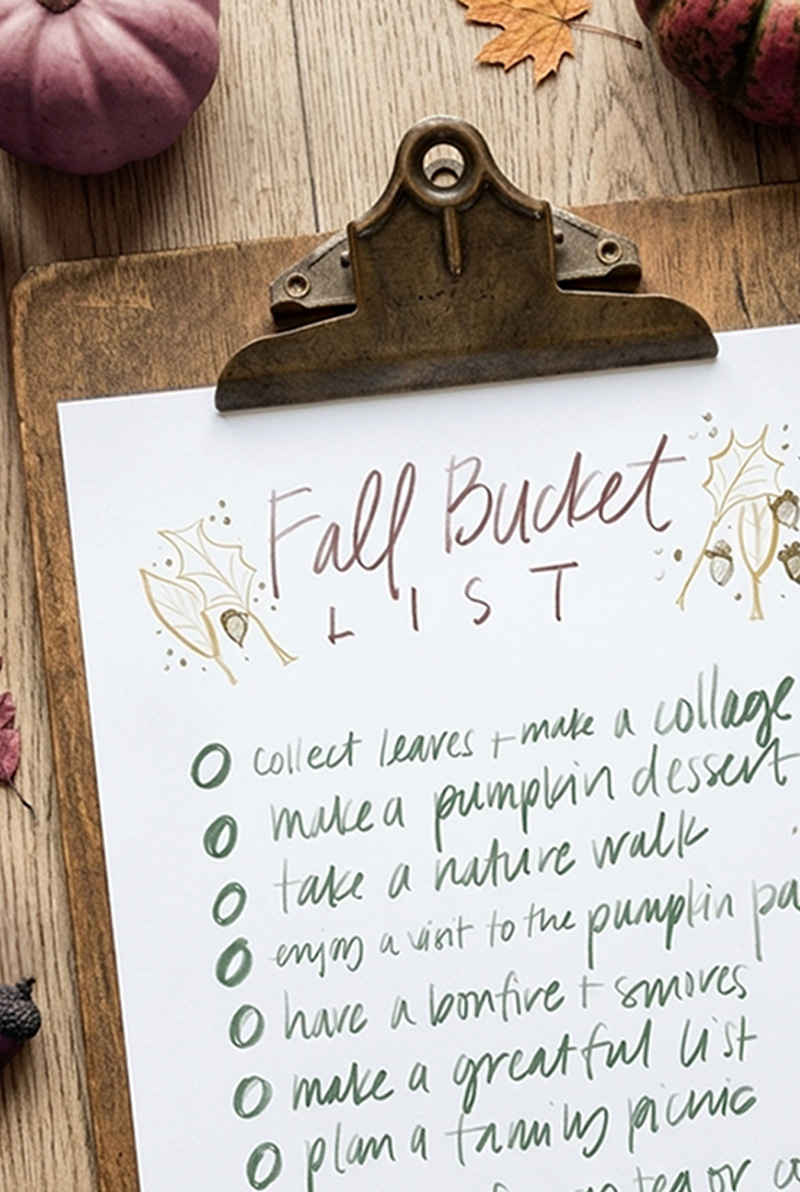 Fall Bucket
LIST
collect leaves + make a collage
make a pumpkin dessert
take a nature walk
enjoy a visit to the pumpkin pa
have a bonfire + smores
make a greatful list
plan a family picnic
tea or